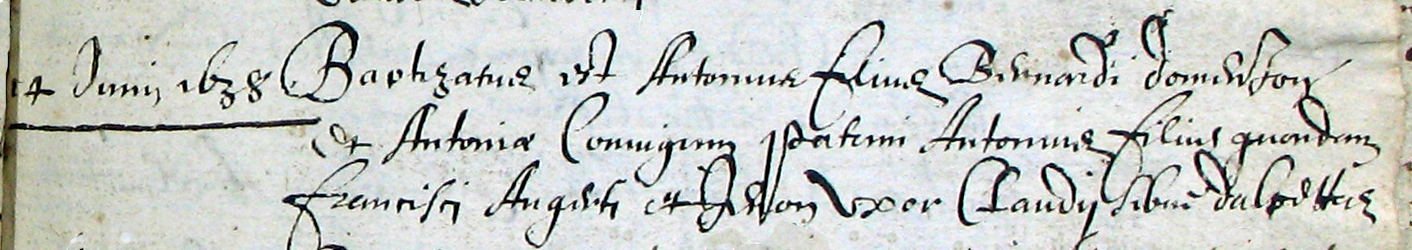 14 Junii 1638 Baptizatus est Antonius filius Bernardi
et Antoniæ Coniugum patrini Antonius filius quondam
Francisci Augerti et uxor Claudij